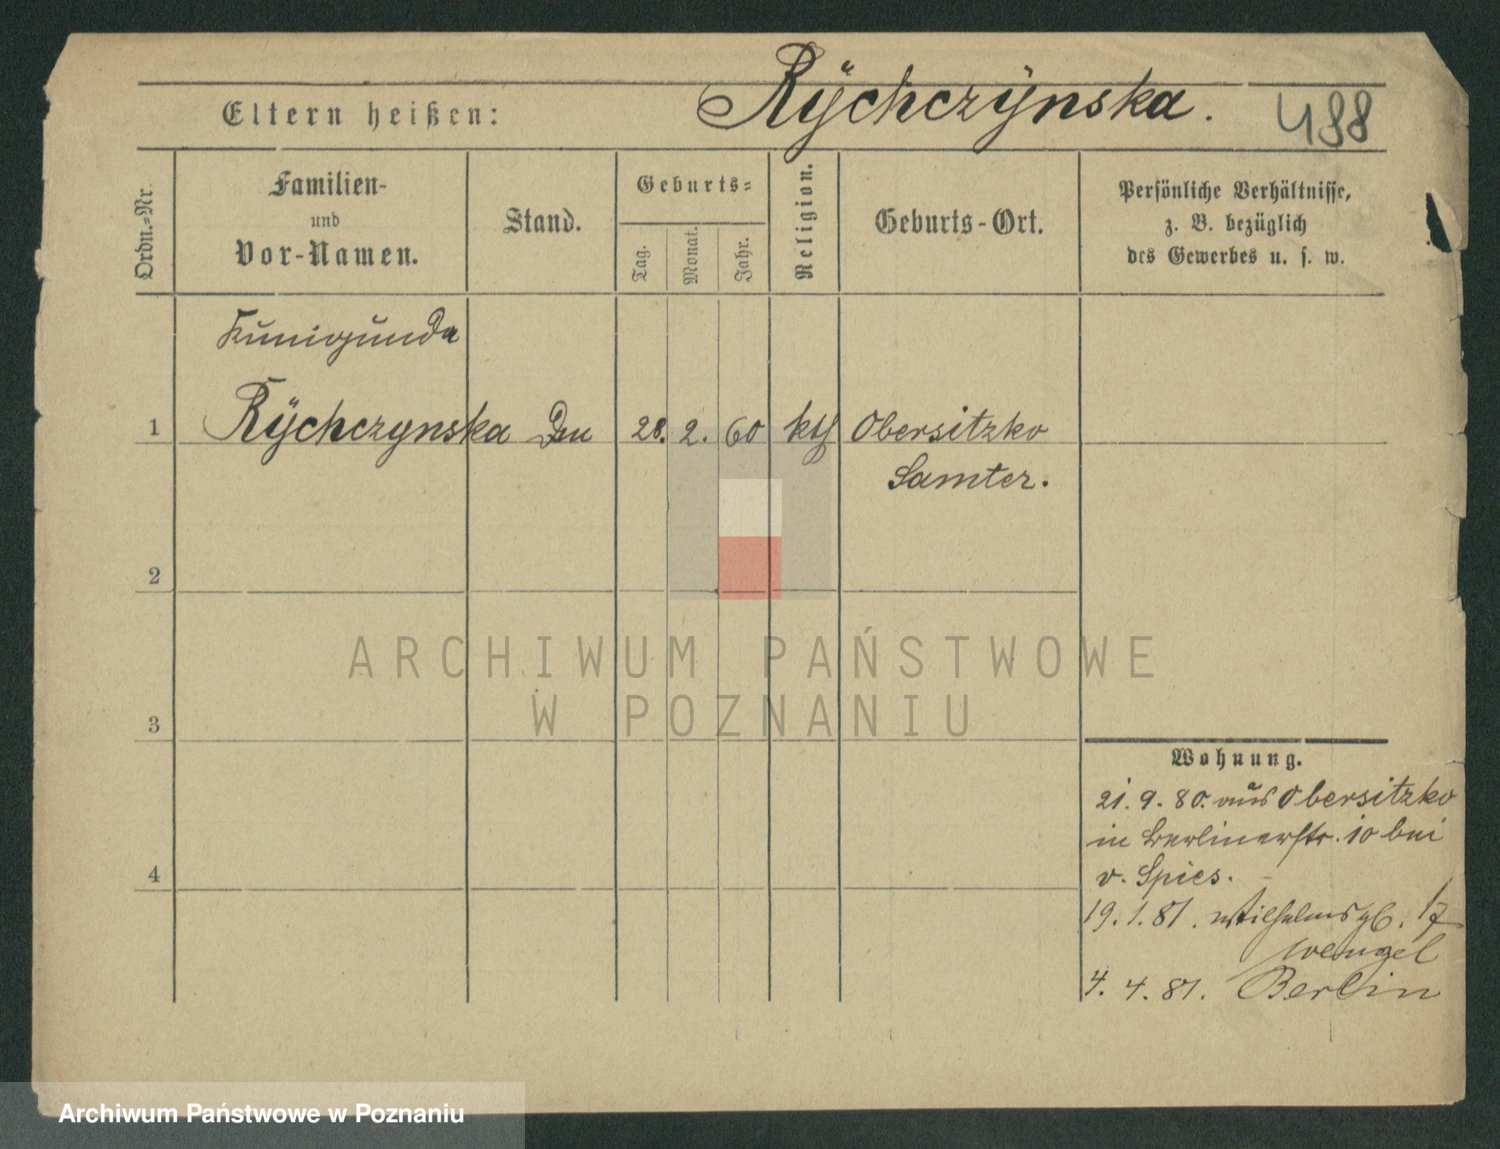 Rÿchczÿnska. 488
Eltern heißen:
Ordn.-Nr.
Familien-
und
Vor-Namen.
Stand.
Geburts-
Tag.
Monat.
Jahr.
Religion.
Geburts-Ort.
Persönliche Verhältnisse,
z. B. bezüglich
des Gewerbes u. s. w.
Kunigunda
1 Rÿchczynska 28. 2. 60 kth Obersitzko
Samter.
2
3
4
ARCHIWUM PAŃSTWOWE
W POZNANIU
Wohnung.
21. 9. 80. aus Obersitzko
in Berlinerstr. 10 bei
v. Spies.
19. 1. 81. Wilhelmspl. 17
Wengel
4. 4. 81. Berlin
Archiwum Państwowe w Poznaniu